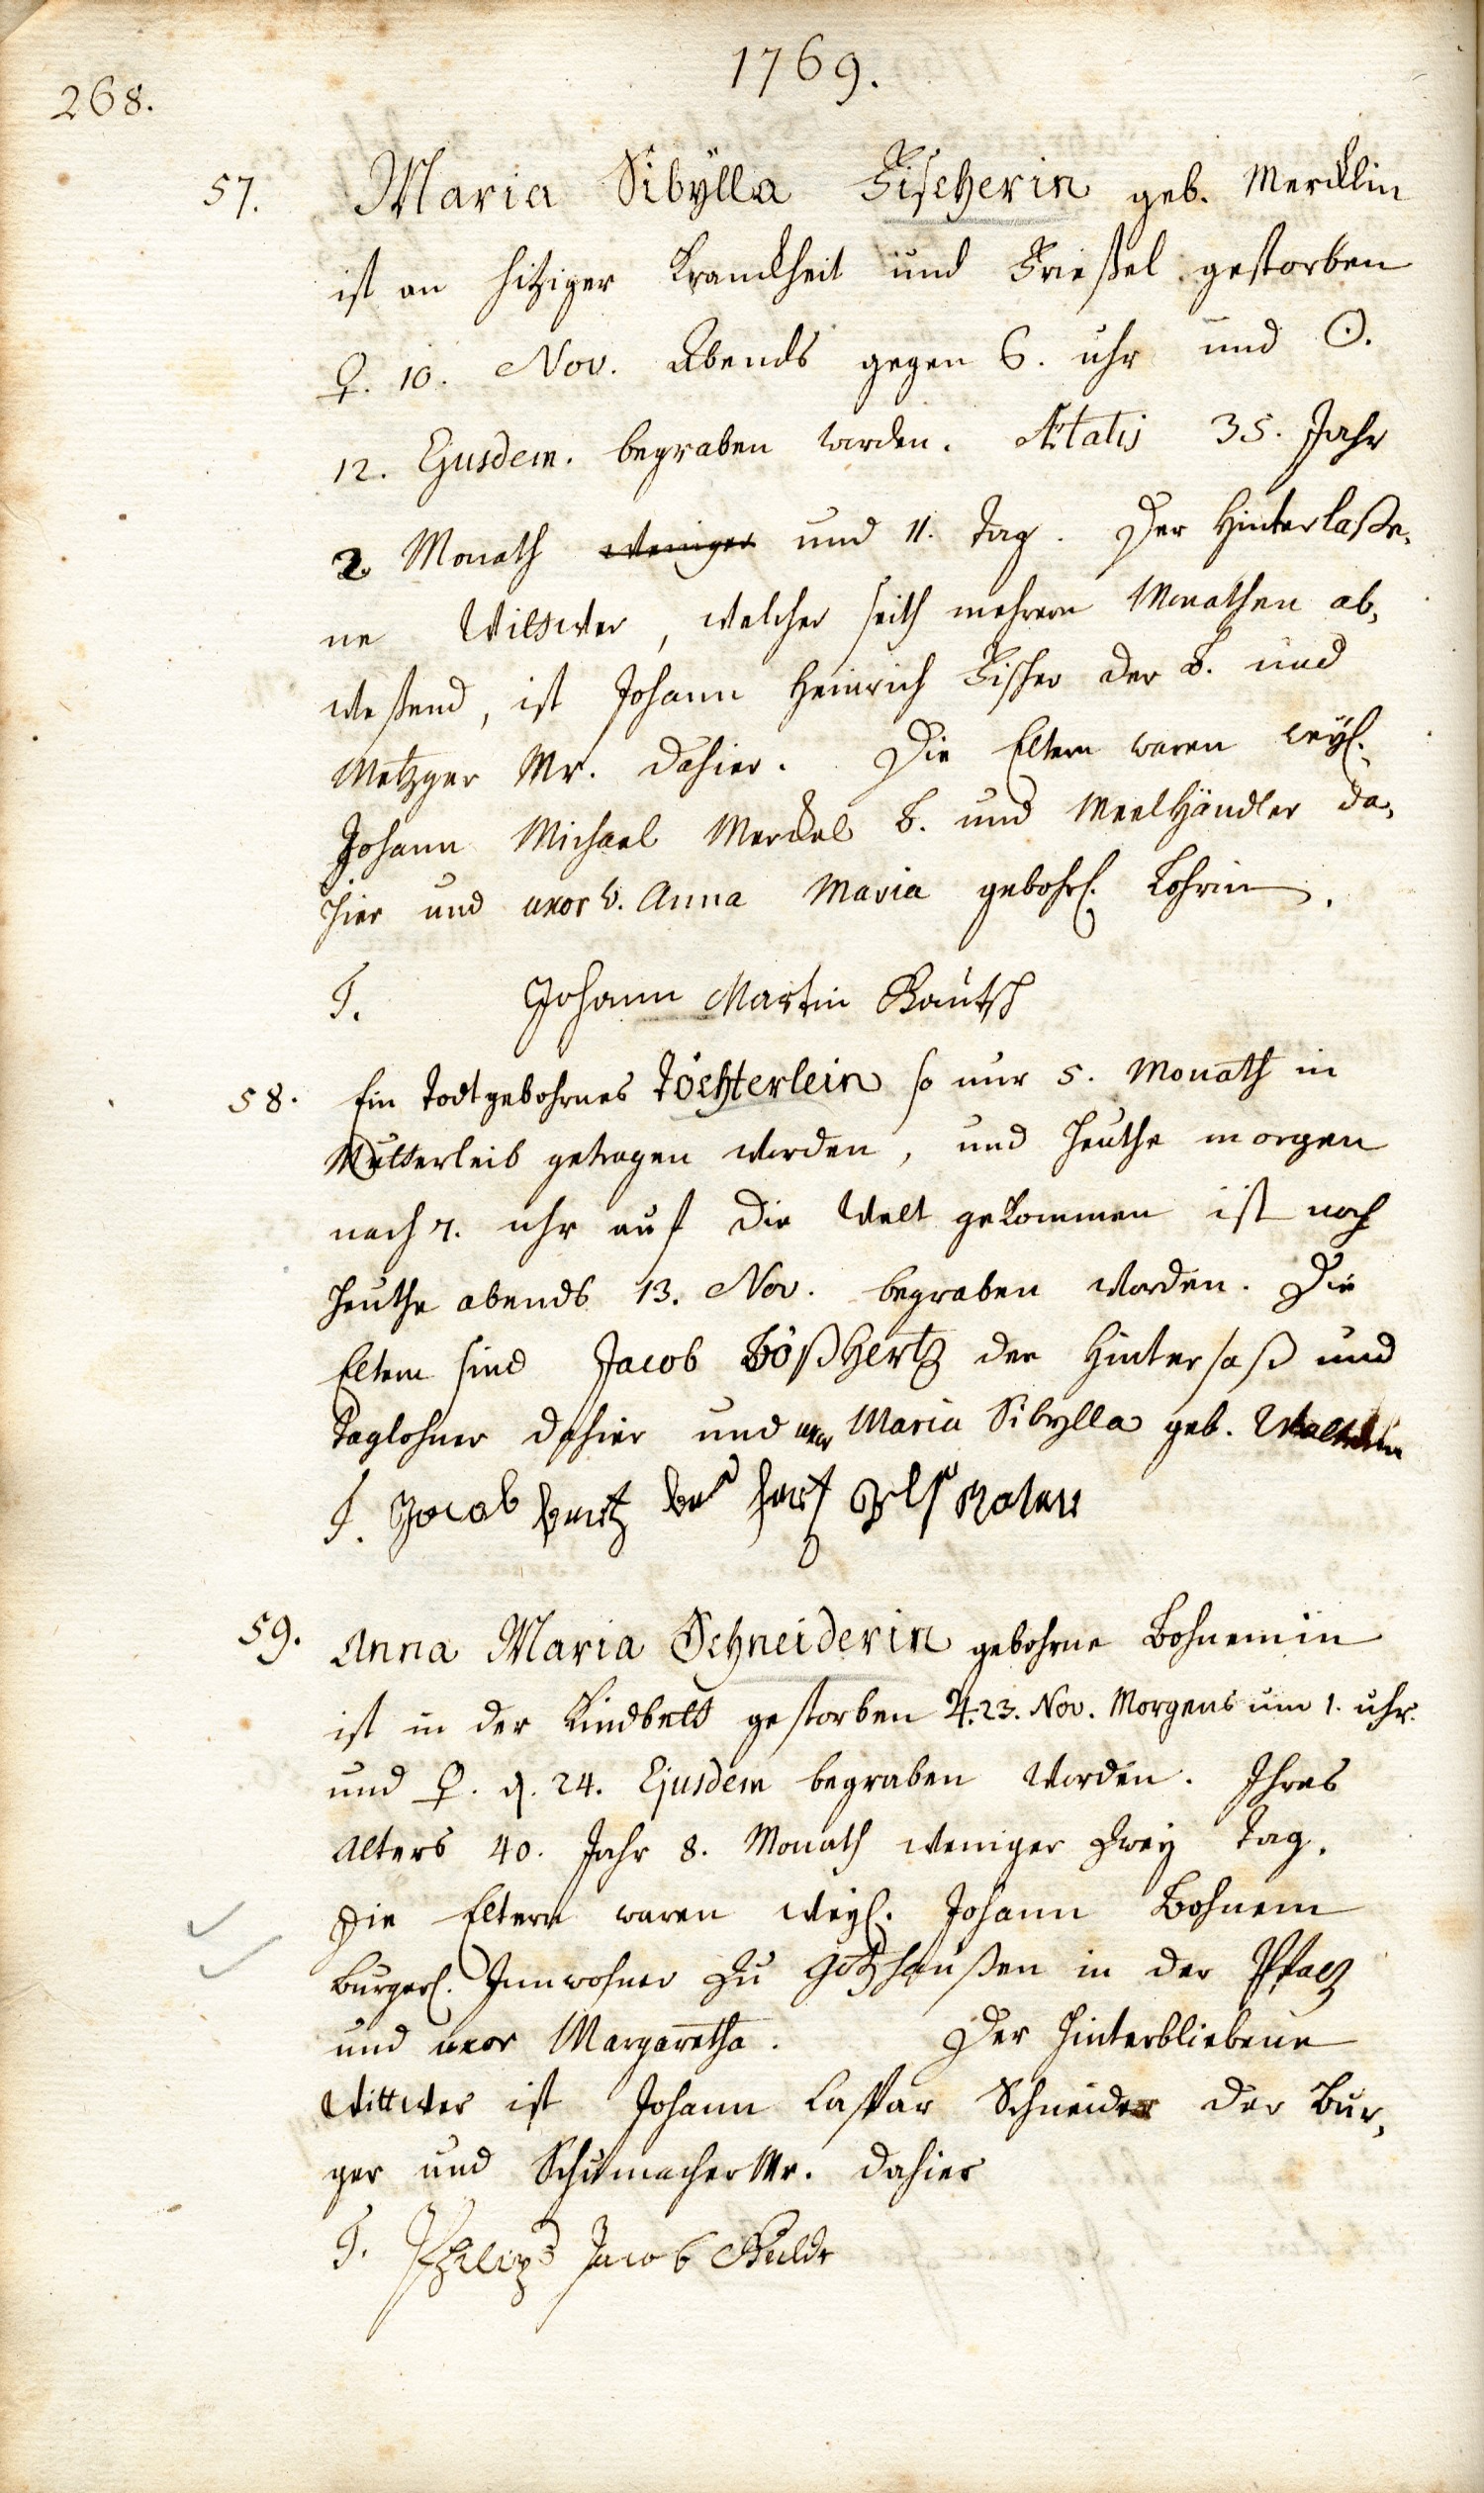 1769.
268.
57. Maria Sibÿlla Fischerin geb. Mercklin
ist an hitziger Kranckheit und Frießel gestorben
♀. 10. Nov. Abends gegen 6. uhr und ☉.
12. Ejusdem. begraben worden. Ætatis 35. Jahr
2. Monath weniger und 11. Tag. Der Hinterlaße,
ne Wittwer, welcher seith mehrern Monathen ab,
weßend, ist Johann Heinrich Fischer der B. und
Metzger Mr. dahier. Die Eltern waren weyl.
Johann Michael Merckel B. und Meelhändler da,
hier und uxor Anna Maria gebohrl. Lohrin.
T. Johann Martin Rautsch
58. Ein Todtgebohrnes Töchterlein so nur 5. Monath in
Mutterleib getragen worden, und heuthe morgen
nach 7. uhr auf die Welt gekommen ist noch
heuthe abends 13. Nov. begraben worden. Die
Eltern sind Jacob Bößhertz der Hintersaß und
Taglohner dahier und uxor Maria Sibylla geb.
T. Jacob
59. Anna Maria Schneiderin gebohrne Bohnemiin
ist in der Kindbett gestorben ♃. 23. Nov. Morgens um 1. uhr.
und ♀. d. 24. Ejusdem begraben worden. Ihres
Alters 40. Jahr 8. Monath weniger zwey Tag.
Die Eltern waren weyl. Johann Bohnem
Burgerl. Innwohner zu Götzhaußen in der Pfaltz
und uxor Margaretha. Der hinterbliebene
Wittwer ist Johann Caspar Schneider der Bur,
ger und Schumacher Mr. dahier
T. Philips Jacob